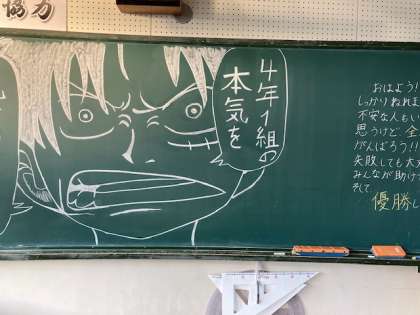 協力
4年1組の
本気を
おはよう!
しっかりねれま
不安な人もい
思うけど 全
がんばろう!!
失敗しても大丈
みんなが助けて
そして
優勝し